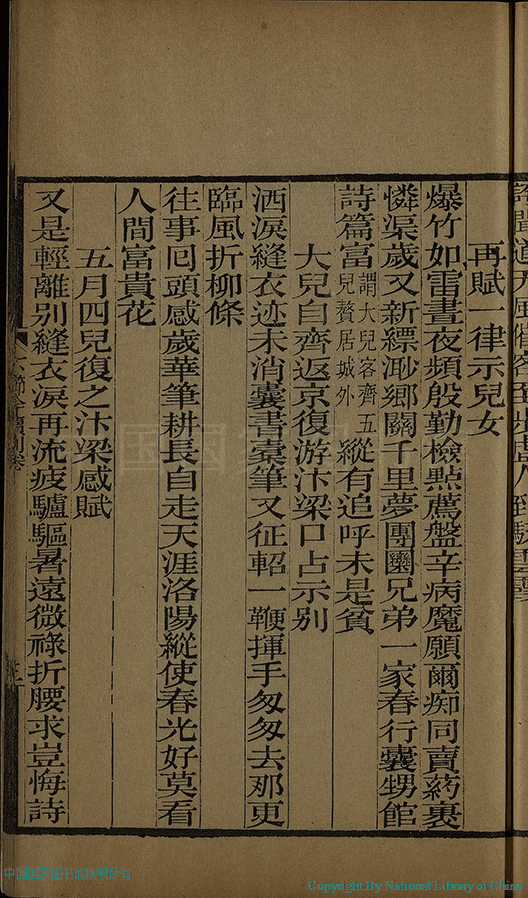 再賦一律示兒女
爆竹如雷晝夜頻殷勤檢點薦盤辛病魔願爾痴同賣葯裹
憐渠歲又新縹渺鄉關千里夢團欒兄弟一家春行囊甥館
詩篇富謂大兒客齊五兒贅居城外縱有追呼未是貧
大兒自齊返京復游汴梁口占示别
洒淚縫衣迹未消囊書橐筆又征軺一鞭揮手匆匆去那更
臨風折柳條
往事囘頭感歲華筆耕長自走天涯洛陽縱使春光好莫看
人間富貴花
五月四兒復之汴梁感賦
又是輕離別縫衣淚再流疲驢驅暑遠微祿折腰求豈悔詩
Copyright By National Library of China